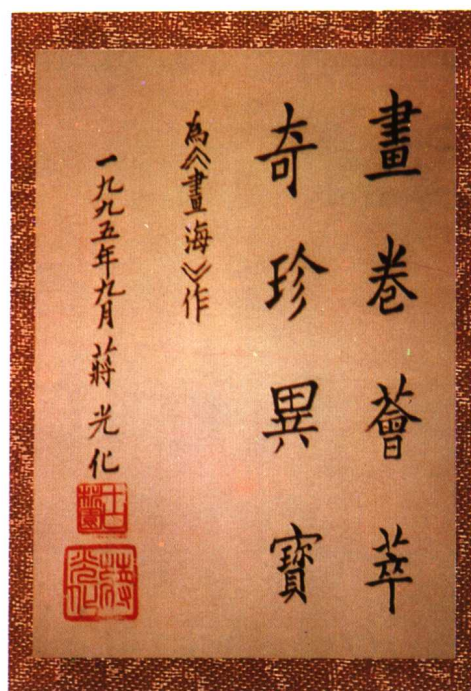 畫卷薈萃
奇珍異寶
為《畫海》作
一九九五年九月蔣光化